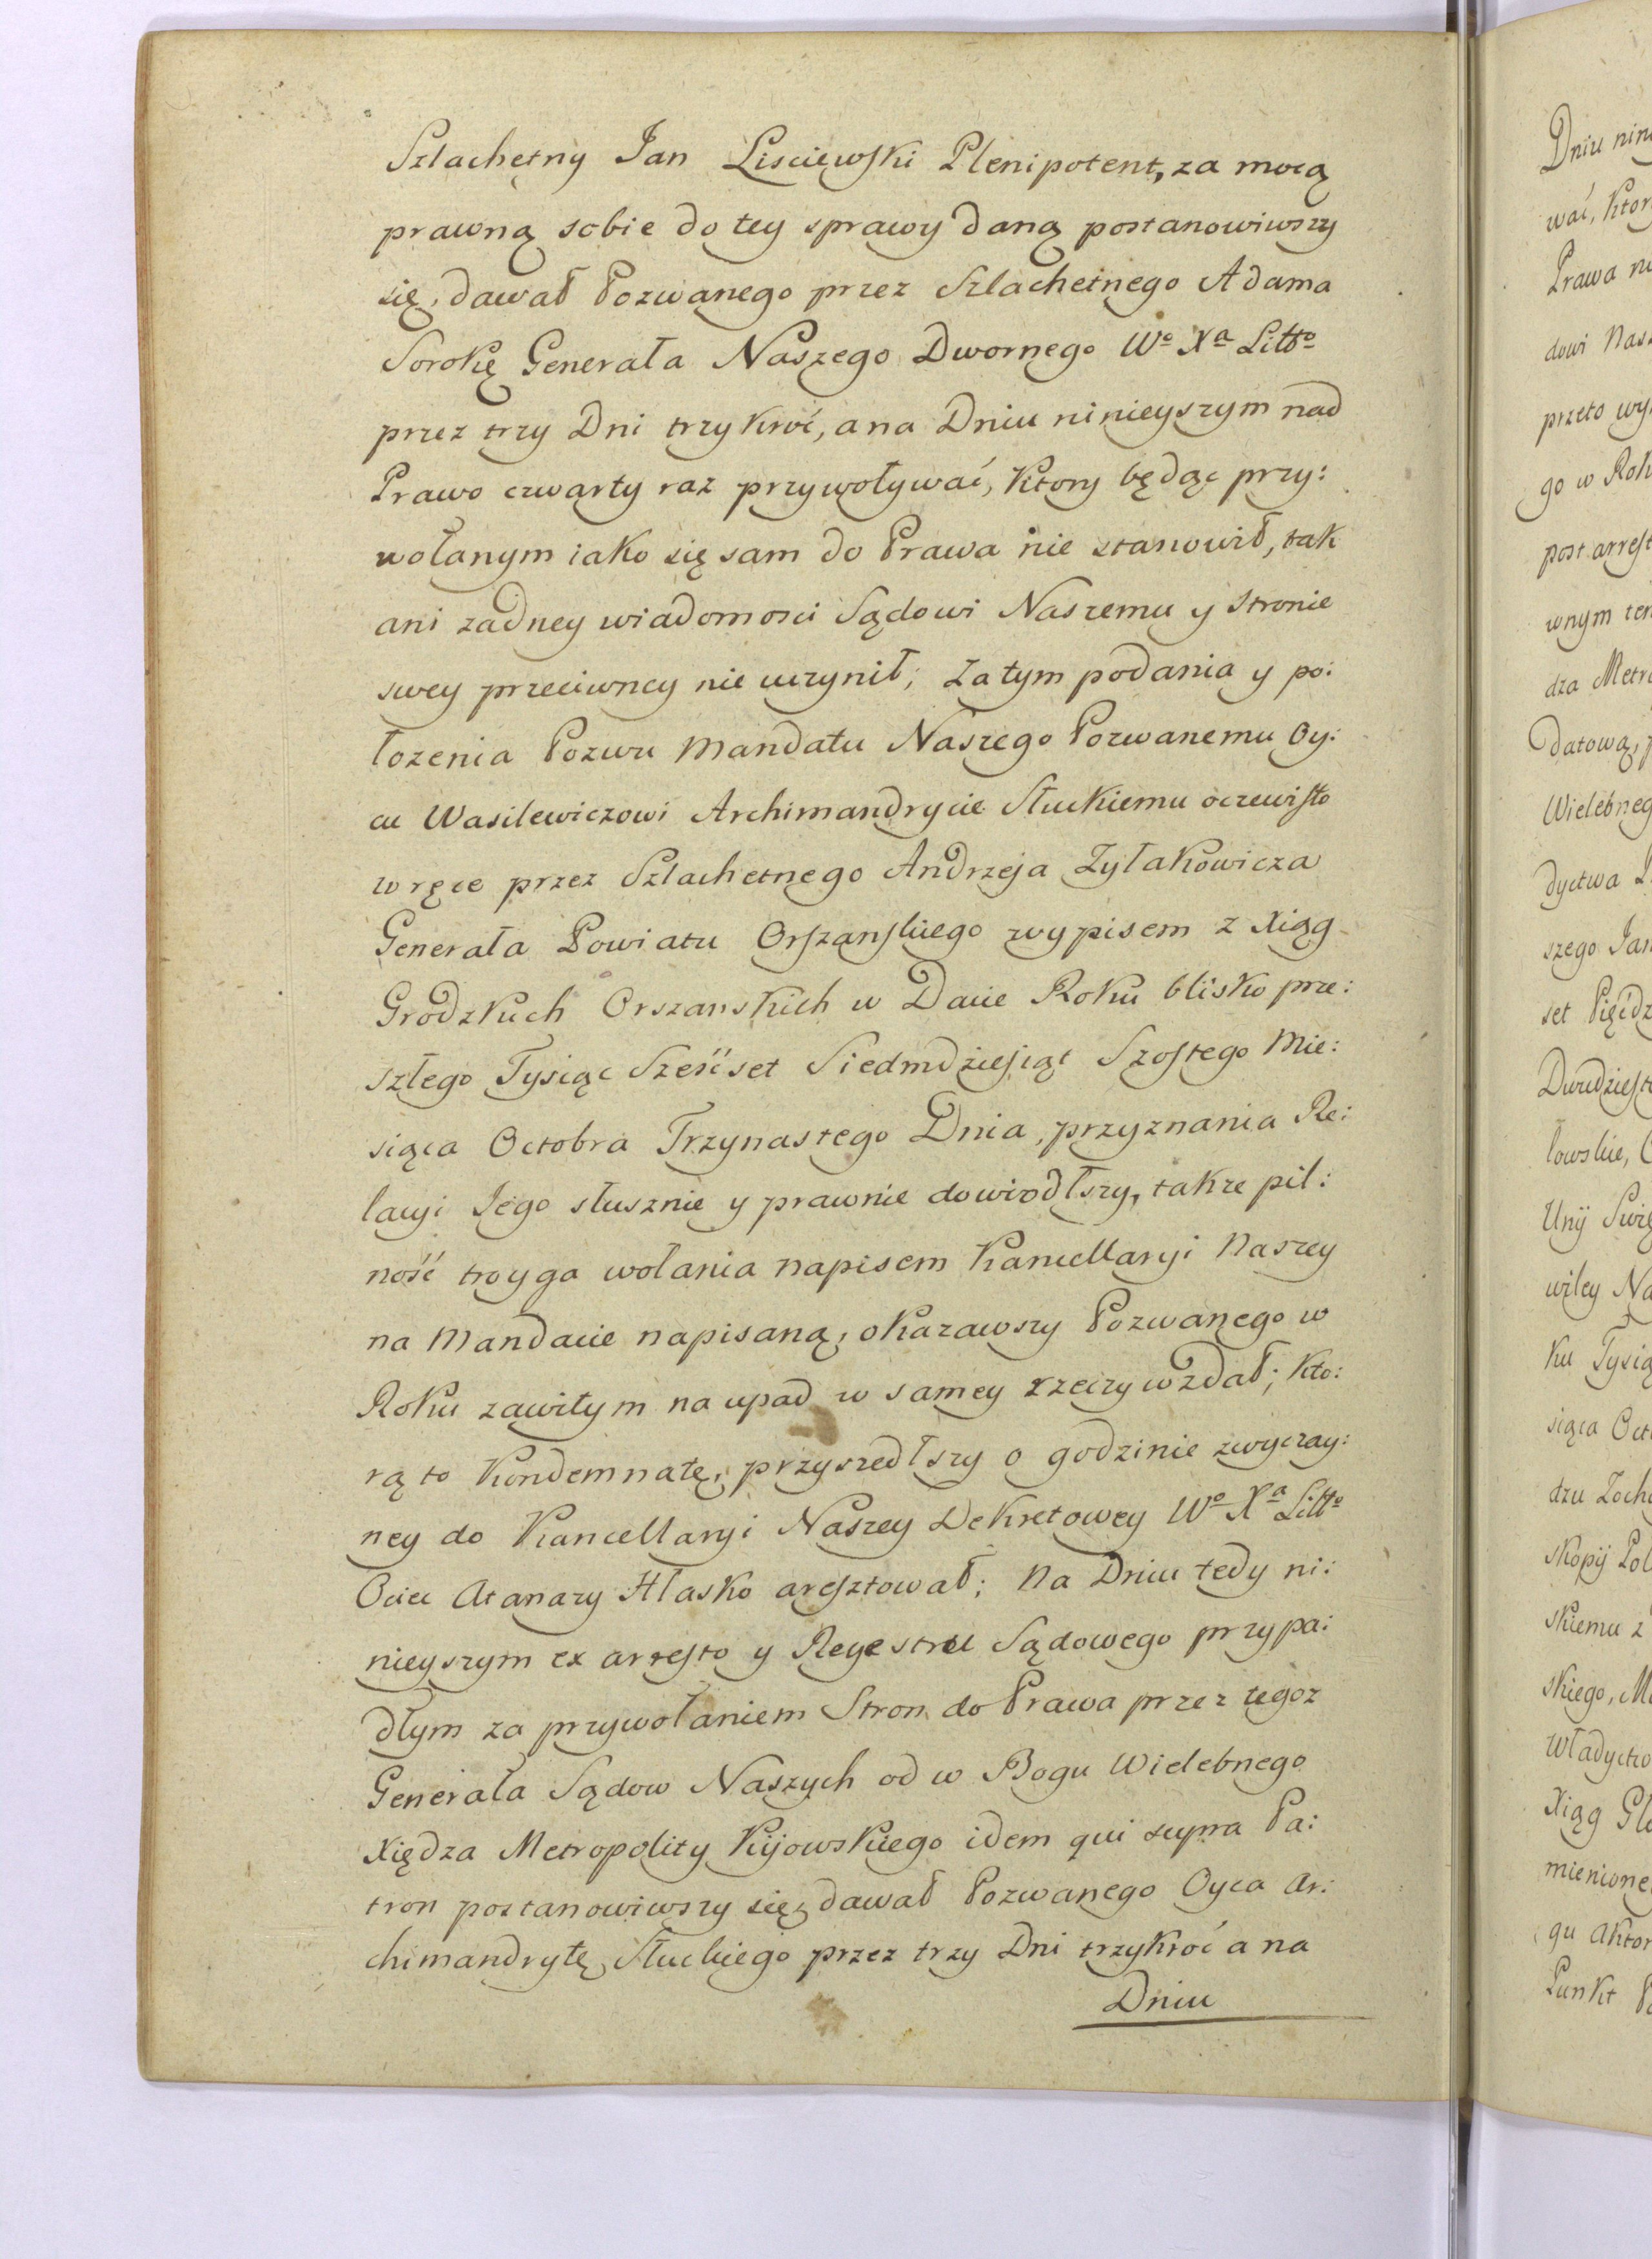 Szlachetny Jan Lisciewski Plenipotent, za mocą
prawną sobie do tey sprawy daną postanowiwszy
się, dawał Pozwanego przez Szlachetnego Adama
Sorokę Generała Naszego Dwornego Wo Xa Litto
przez trzy Dni trzykroć, a na Dniu ninieyszym nad
Prawo czwarty raz przywoływać, Ktory będąc przy:
wołanym iako się sam do Prawa nie stanowił, tak
ani zadney wiadomosci Sądowi Naszemu y stronie
swey przeciwney nie uczynił; Zatym podania y po:
łozenia Pozwu Mandatu Naszego Pozwanemu Oy:
cu Wasilewiczowi Archimandrycie Słuckiemu oczewisto
w ręce przez Szlachetnego Andrzeja Zyłakowicza
Generała Powiatu Orszanskiego wypisem z Xiąg
Grodzkich Orszanskich w Dacie Roku blisko prze:
szłego Tysiąc Sześćset Siedmdziesiąt Szostego Mie:
siąca Octobra Trzynastego Dnia, przyznania Re:
lacyi Jego słusznie y prawnie dowiodłszy, takze pil:
ność troyga wołania napisem Kancellaryi Naszey
na Mandacie napisaną, okazawszy Pozwanego w
Roku zawitym na upad w samey rzeczy wzdał; Kto:
rą to Kondemnatę, przyszedłszy o godzinie zwyczay:
ney do Kancellaryi Naszey Dekretowey Wo Xa Litto
Ociec Atanazy Hłasko aresztował; Na Dniu tedy ni:
nieyszym ex arresto y Regestru Sądowego przypa:
dłym za przywołaniem Stron do Prawa przez tegoz
Generała Sądow Naszych od w Bogu Wielebnego
Xiędza Metropolity Kijowskiego idem qui supra Pa:
tron postanowiwszy się, dawał Pozwanego Oyca Ar:
chimandrytę Słuckiego przez trzy Dni trzykroć a na
Dniu
Dniu
wać, Ktor
Prawa
dowi Nas
przeto
go w Rok
post arrest
wnym
dza Metro
datową,
Wielebneg
dyctwa
szego Jan
set Pięćdz
Dwudziest
łowskie,
Unij Swię
wiley Na
ku Tysią
siąca Oct
dzu
skopij Poł
skiemu z
skiego, M
Władyctw
Xiąg Gł
mienione
gu Aktor
Punkt